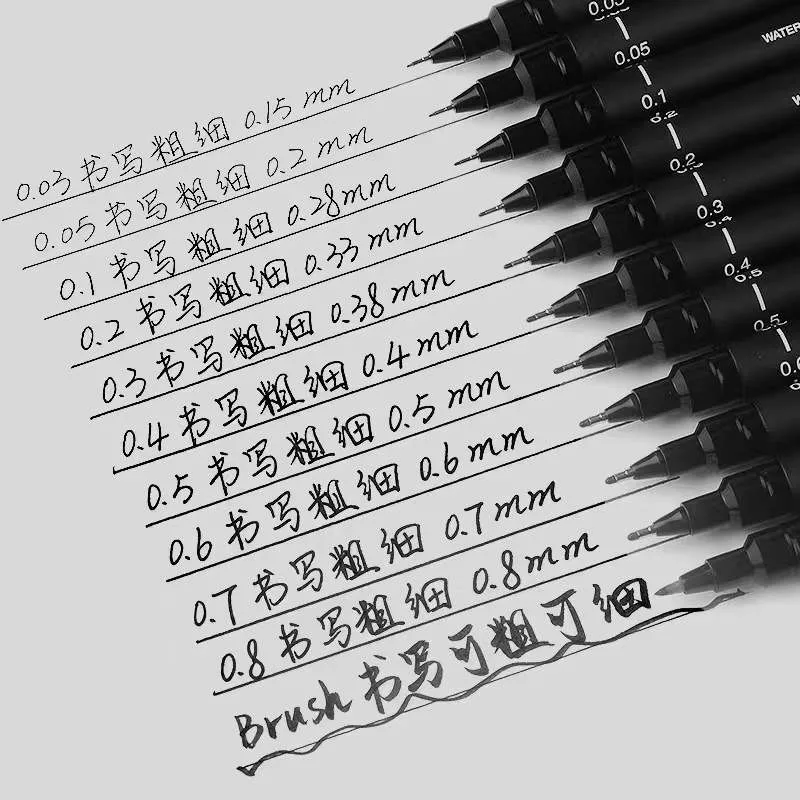 0.03 书写粗细 0.15 mm
0.05 书写粗细 0.2 mm
0.1 书写粗细 0.28mm
0.2 书写粗细 0.33 mm
0.3 书写粗细 0.38 mm
0.4 书写粗细 0.4 mm
0.5 书写粗细 0.5 mm
0.6 书写粗细 0.6 mm
0.7 书写粗细 0.7 mm
0.8 书写粗细 0.8 mm
Brush 书写可粗可细
0.05
0.1
0.2
0.2
0.3
0.4
0.4
0.5
0.5
WATER